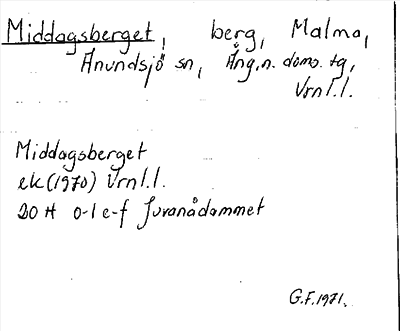 Middagsberget, berg, Malma,
Anundsjö sn, Ång.n. doms. tg,
Vrnl.l.
Middagsberget
ek (1970) Vrnl.l.
20 H 0-1 e-f Juvanådammet
G.F. 1971.